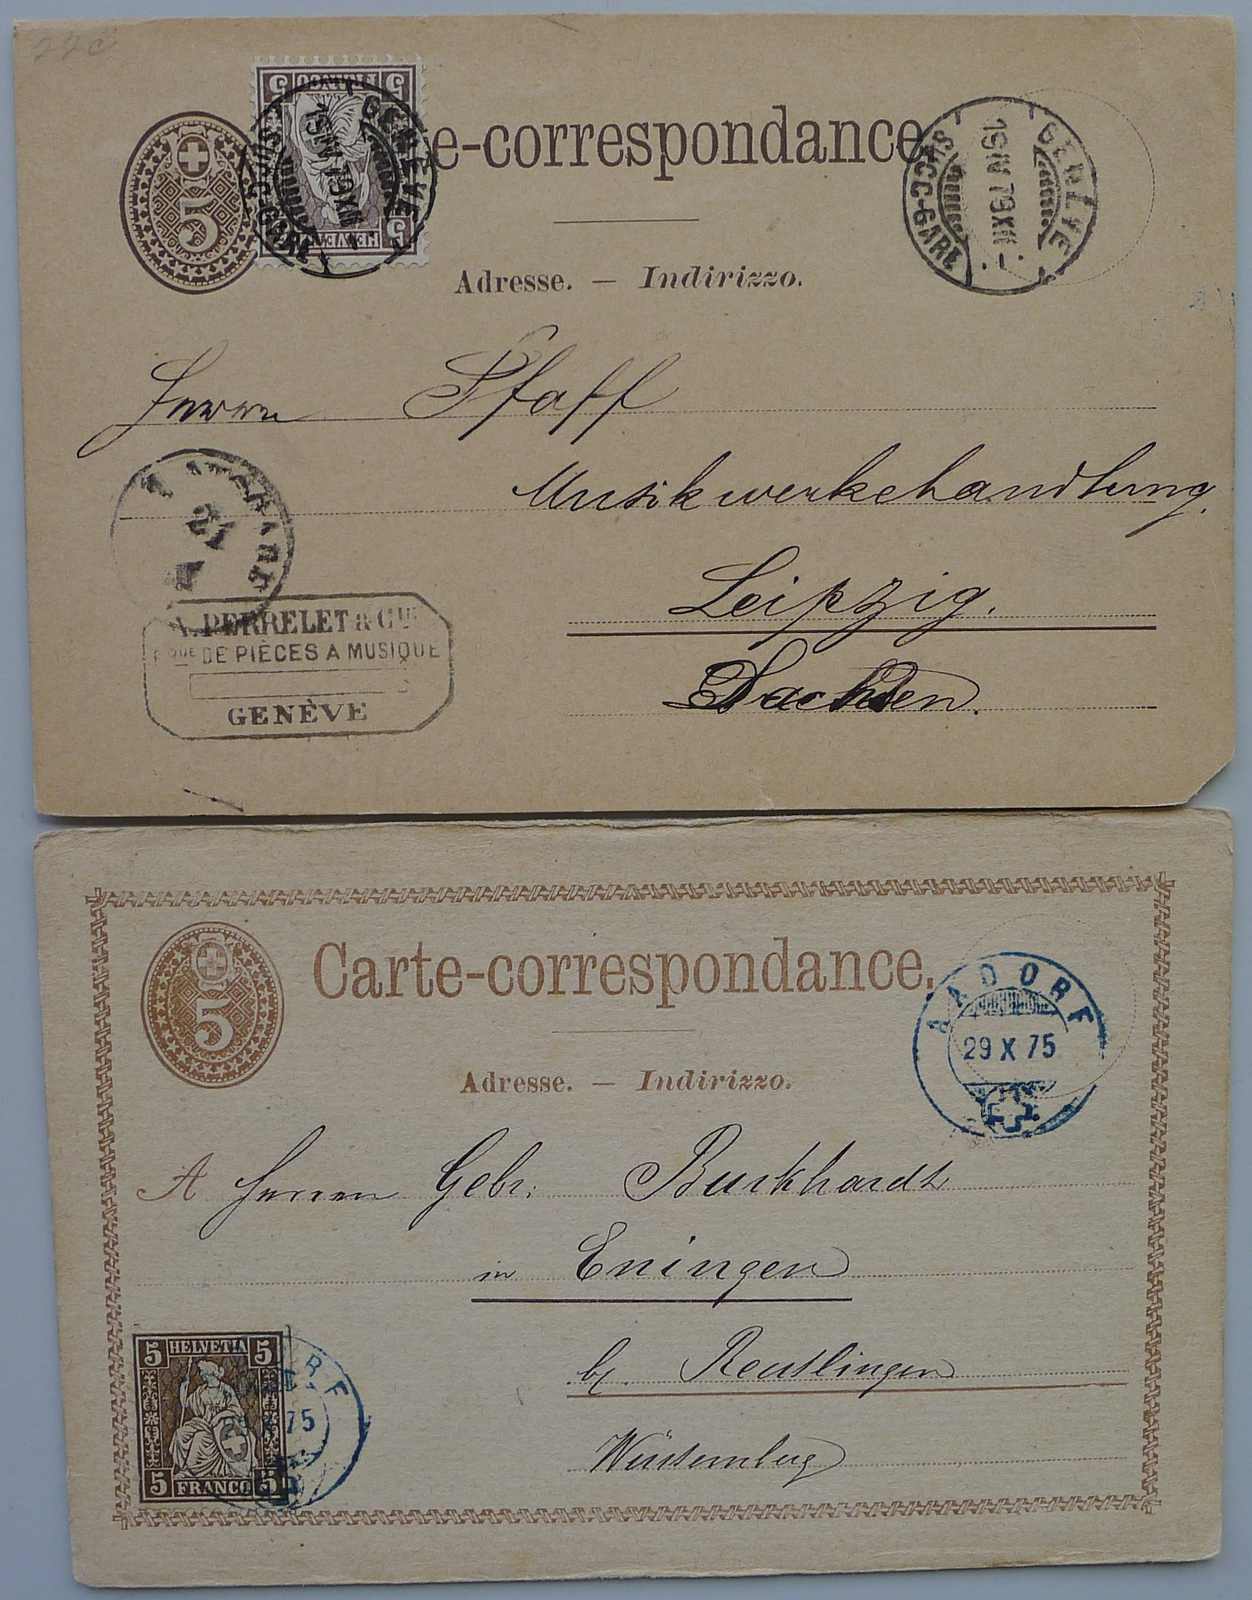 22c
5
5 FRANCO 5
HELVETIA 5
GENÈVE
SUCC-GARE
15 IV 79 XII
e-correspondance.
GENÈVE
15 IV 79 XII
SUCC-GARE
Adresse. — Indirizzo.
Herrn Pfaff
Musikwerkehandlung.
Leipzig.
Sachsen.
A. PERRELET & Cie
Fque DE PIÈCES A MUSIQUE
GENÈVE
5
Carte-correspondance.
AADORF
29 X 75
Adresse. — Indirizzo.
A Herren Gebr: Burkhardt
in Eningen
b/ Reutlingen
Würtemberg
5 HELVETIA 5
5 FRANCO 5
X 75